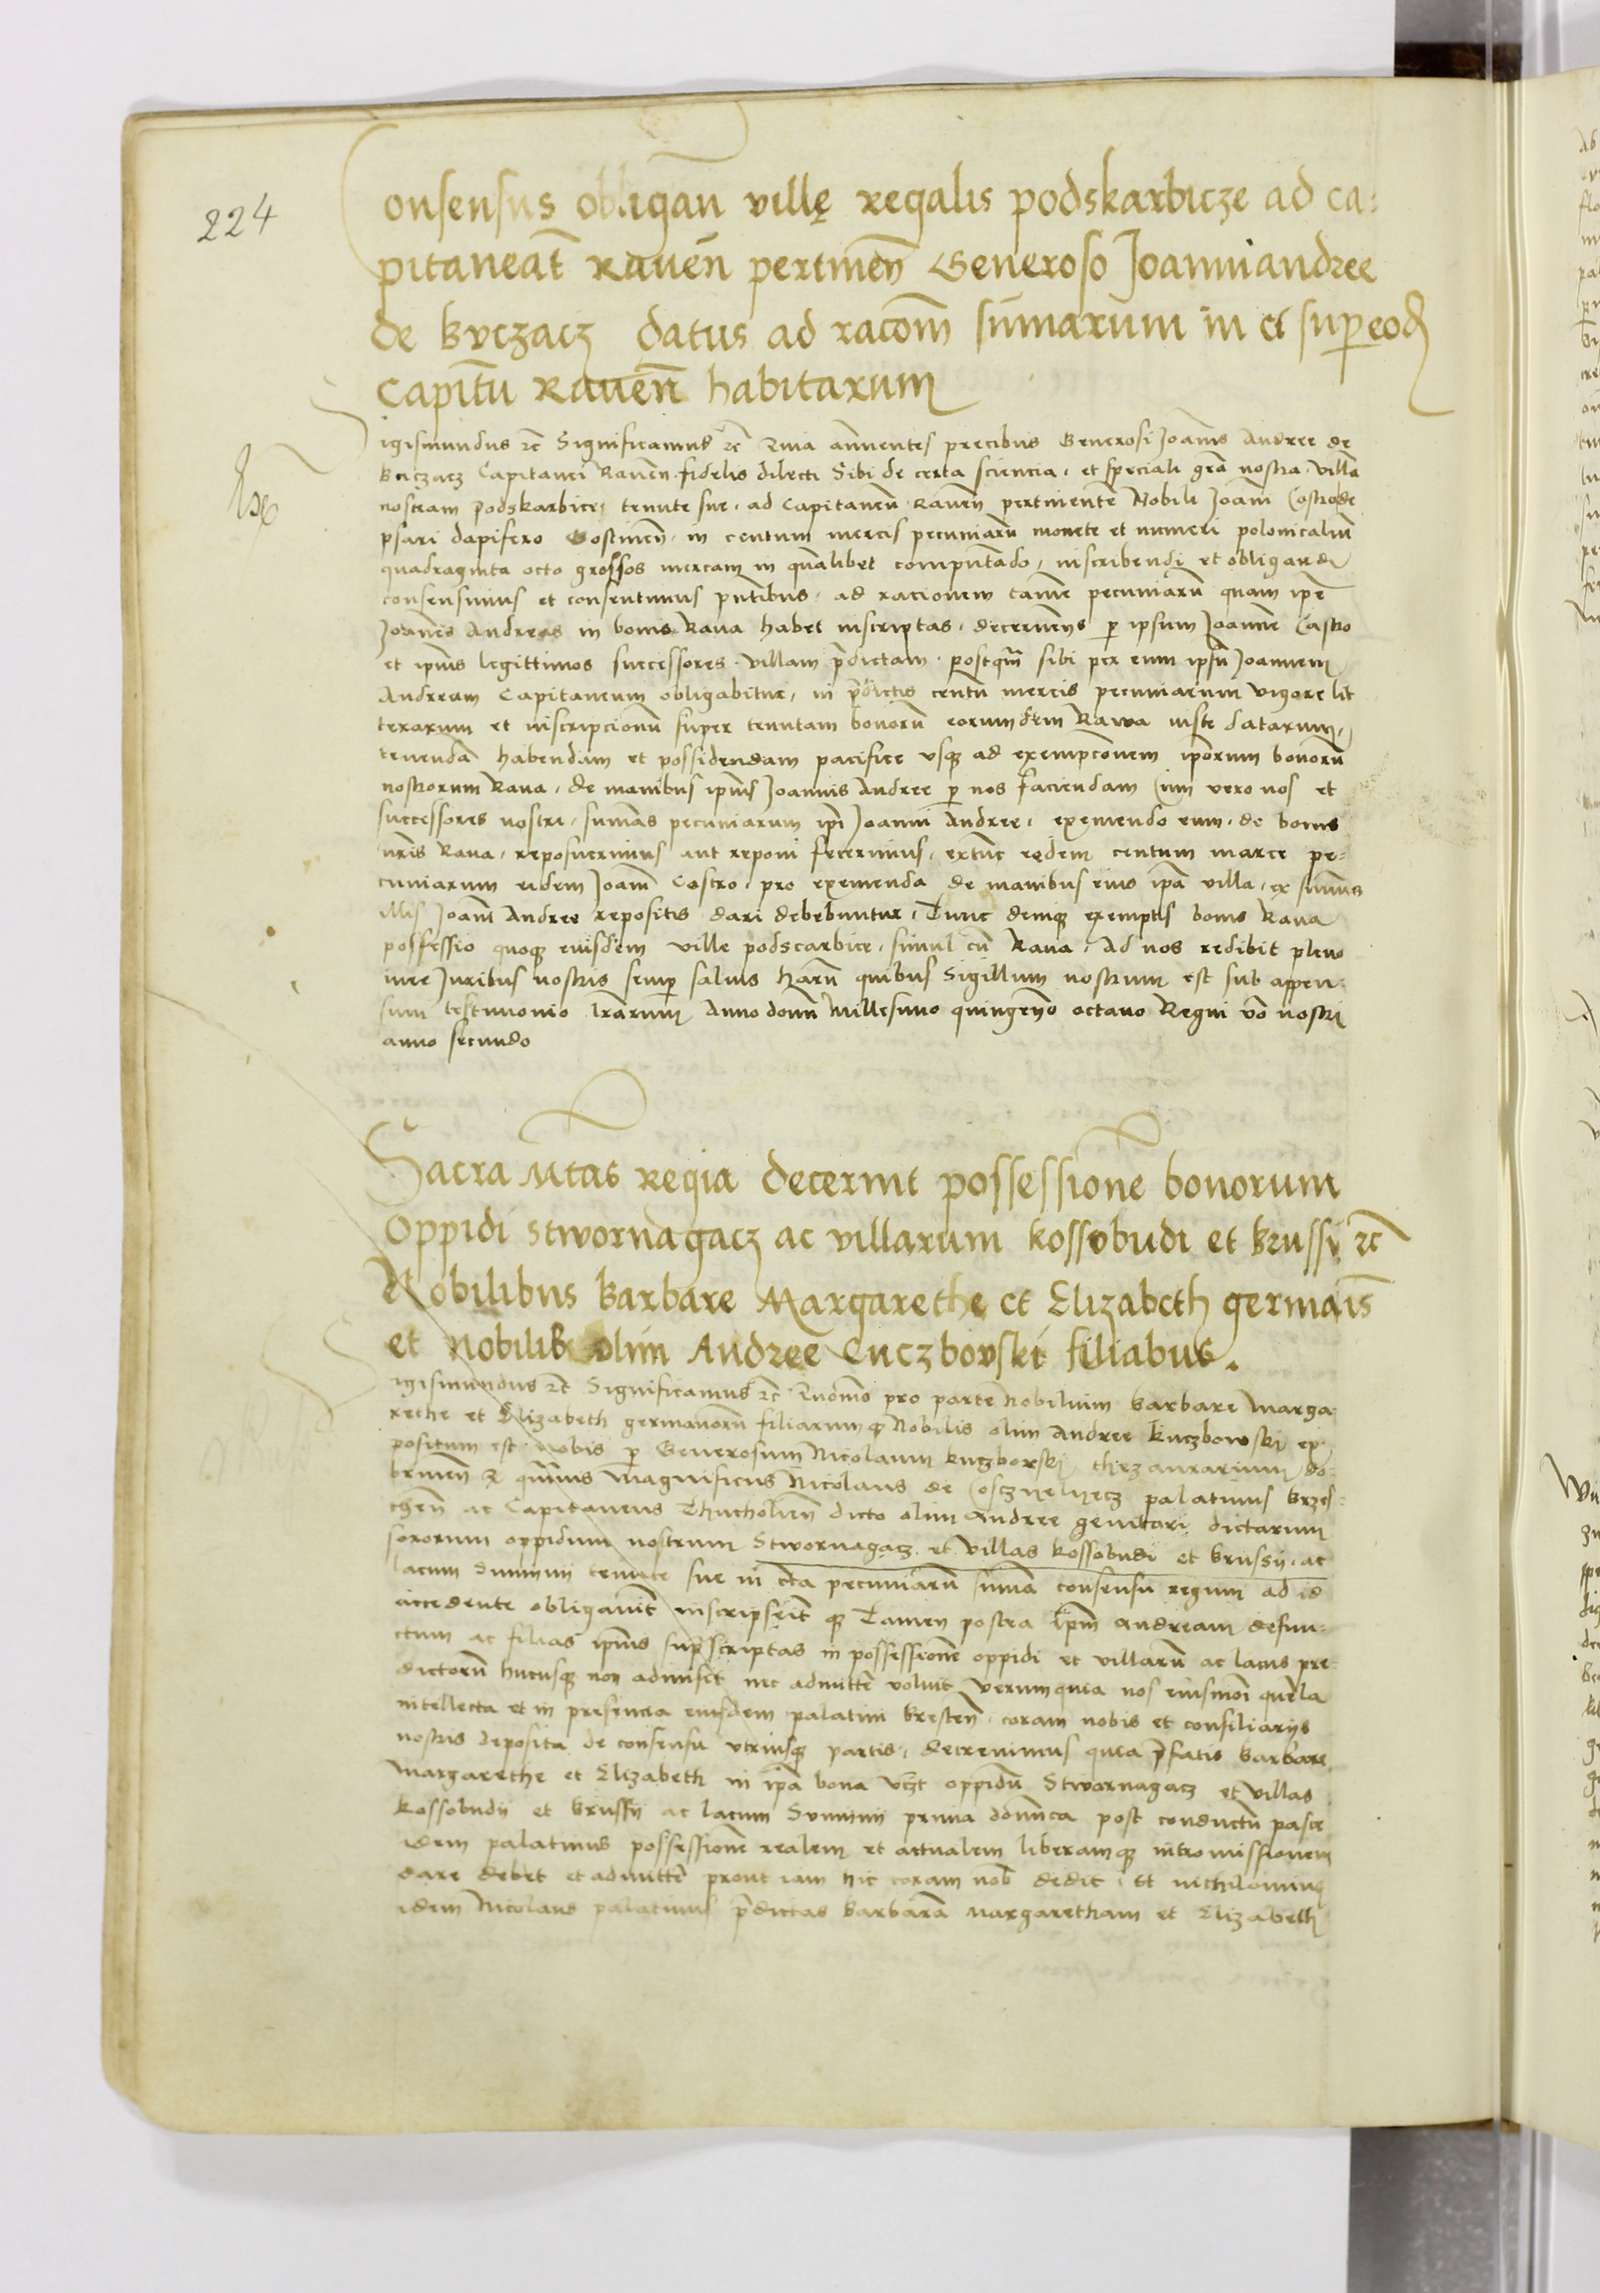 224
Consensus obligan villę regalis podskarbicze ad ca-
pitaneat Raven pertinen Generoso Joanni andree
de Buczacz datus ad racom sumarum in et super eod
Capitu Raven habitarum
Sigismundus rc Significamus rc Quia annuentes precibus Generosi Joanis Andree de
Buczacz Capitanei Raven. fidelis dilecti Sibi de certa sciencia, et speciali gra nostra, villa
nostram Podskarbice, tenute sue, ad Capitaneu Raven pertinente Nobili Joani Costro de
psari dapifero Gostinen, in centum mercis pecuniaru monete et numeri polonicaliu
quadraginta octo grossos mercam in qualibet computado, inscribendi et obligandi
consensimus et consentimus pntibus, ad racionem tame pecuniaru quam ipe
Joanes Andreas in bonis Rava habet inscriptas, decernens p ipsum Joanne Castro
et ipius legittimos successores, villam pdictam, postqm sibi per eum ipsu Joannem
Andream Capitaneum obligabitur, in pdictis centu mercis pecuniarum vigore lit
terarum et inscripcionu super tenutam bonoru eorumdem Rawa iuste datarum,
tenenda habendam et possidendam pacifice usq ad exempcionem iporum bonoru
nostrorum Rava, de manibus ipius Joannis Andree p nos faciendam Cum vero nos et
successores nostri, sumas pecuniarum ipi Joanni Andree, eximendo eum, de bonis
nris Rava, reposuerimus aut reponi fecerimus, extunc eędem centum marce pe-
cuniarum eidem Joani Costro, pro exemenda de manibus eius ipa villa, ex sumis
illis Joani Andree repositis dari debebuntur, Tunc deniq exemptis bonis Rava
possessio quoq eiusdem ville podscarbice, simul cu Rava, Ad nos redibit pleno
iure Juribus nostris semp salvis Haru quibus Sigillum nostrum est sub appen-
sum testimonio lrarum Anno domi Millesimo quingeno octavo Regni vo nostri
anno secundo
Sacra Mtas regia decernit possessione bonorum
oppidi Stwornagacz ac villarum kossobudi et Brussi rc
Nobilibus Barbare Margarethe et Elizabeth germais
et nobilib olim Andree Cuczbovski filiabus.
Sigismundus rc Significamus rc Quomo pro parte nobilium Barbare Marga-
rethe et Elizabeth germanoru filiarumq Nobilis olim Andree Kuczbowski ex-
positum est nobis p Generosum Nicolaum kuczborski thezaurarium do-
brinen Quomodo magnificus Nicolaus de Cosczyelyecz palatinus brzes-
then ac Capitaneus Thucholien dicto olim Andree genitori dictarum
sororum oppidum nostrum Stwornagacz et villas kossobudi et Brussy, ac
lacum Summin tenute sue in cta pecuniaru suma consensu regum ad id
accedente obligavit inscripseit q Tamen postea ipm Andream defun-
ctum ac filias ipius supscriptas in possessione oppidi et villaru ac lacus pre-
dictoru hucusq non admisit nec admitte voluit verum quia nos eiusmoi querela
intellecta et in presencia eiusdem palatini Bresten, coram nobis et consiliariis
nostris deposita de consensu utriusq partis, decrevimus quia pfatis Barbare
Margarethe et Elizabeth in ipa bona vczt oppidu Stwornagacz et villas
Kossobudy et Brussy ac lacum Summin prima domica post conductu pasce
idem palatinus possessione realem et actualem liberamq intromissionem
dare debet et admitte prout iam hic coram nob dedit, Et nichilominus
idem Nicolaus palatinus pdictas Barbara Margaretham et Elizabeth